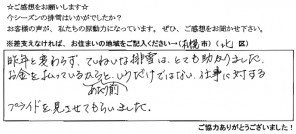 ☆ご感想をお願いします☆
今シーズンの排雪はいかがでしたか?
お客様の声が、私たちの原動力になっています。ぜひ、ご感想をお聞かせ下さい。
※差支えなければ、お住まいの地域をご記入ください→(札幌市)(北区)
昨年と変わらず、ていねいな排雪は、とても助かりました。
お金を払っているからというだけではない、仕事に対する
あたり前
プライドを見させてもらいました。
ご協力ありがとうございました!